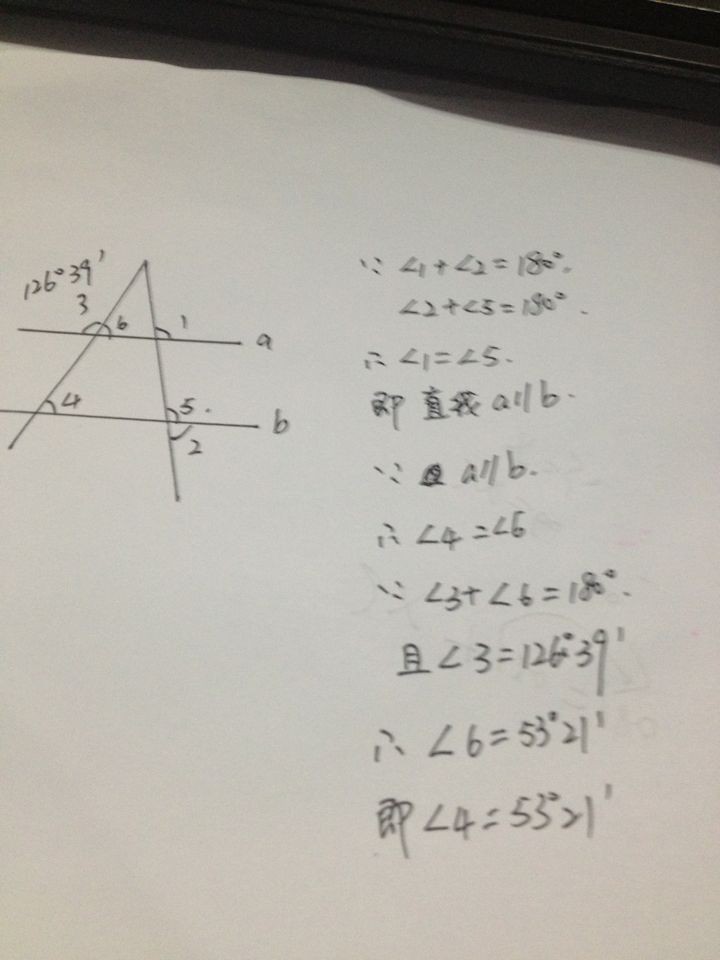 126°39'
3
6
1
a
4
5.
b
2
∵ ∠1+∠2=180°.
∠2+∠5=180°.
∴ ∠1=∠5.
即 直线 a∥b.
∵ a∥b.
∴ ∠4=∠6
∵ ∠3+∠6=180°.
且∠3=126°39'
∴ ∠6=53°21'
即∠4=53°21'